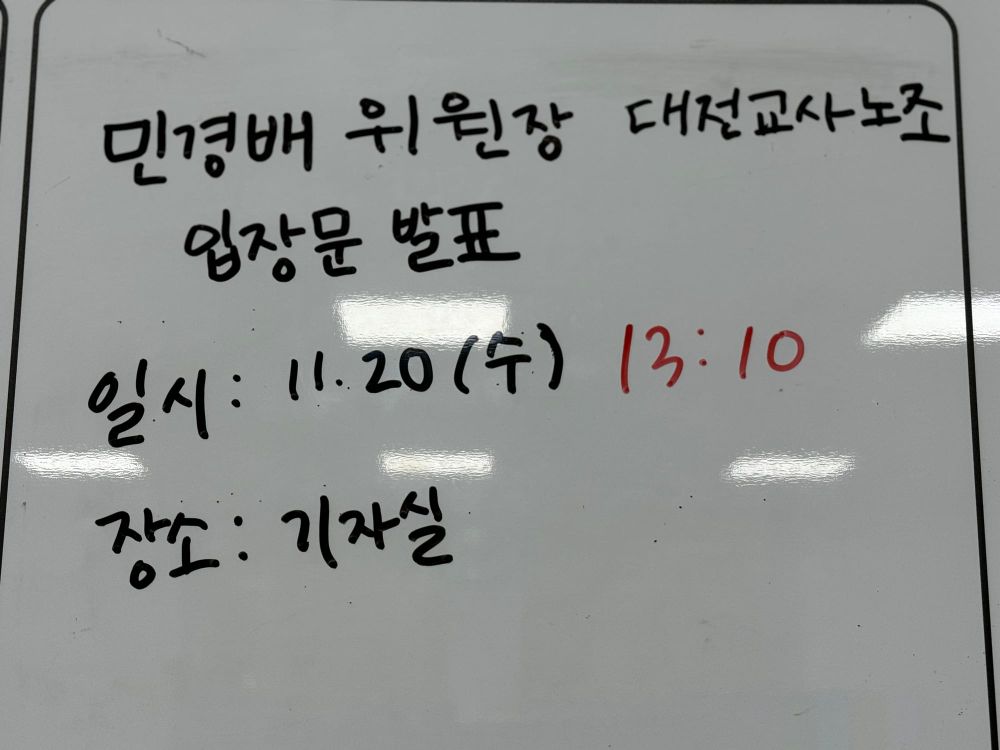 민경배 위원장 대전교사노조
입장문 발표
일시: 11.20(수) 13:10
장소: 기자실